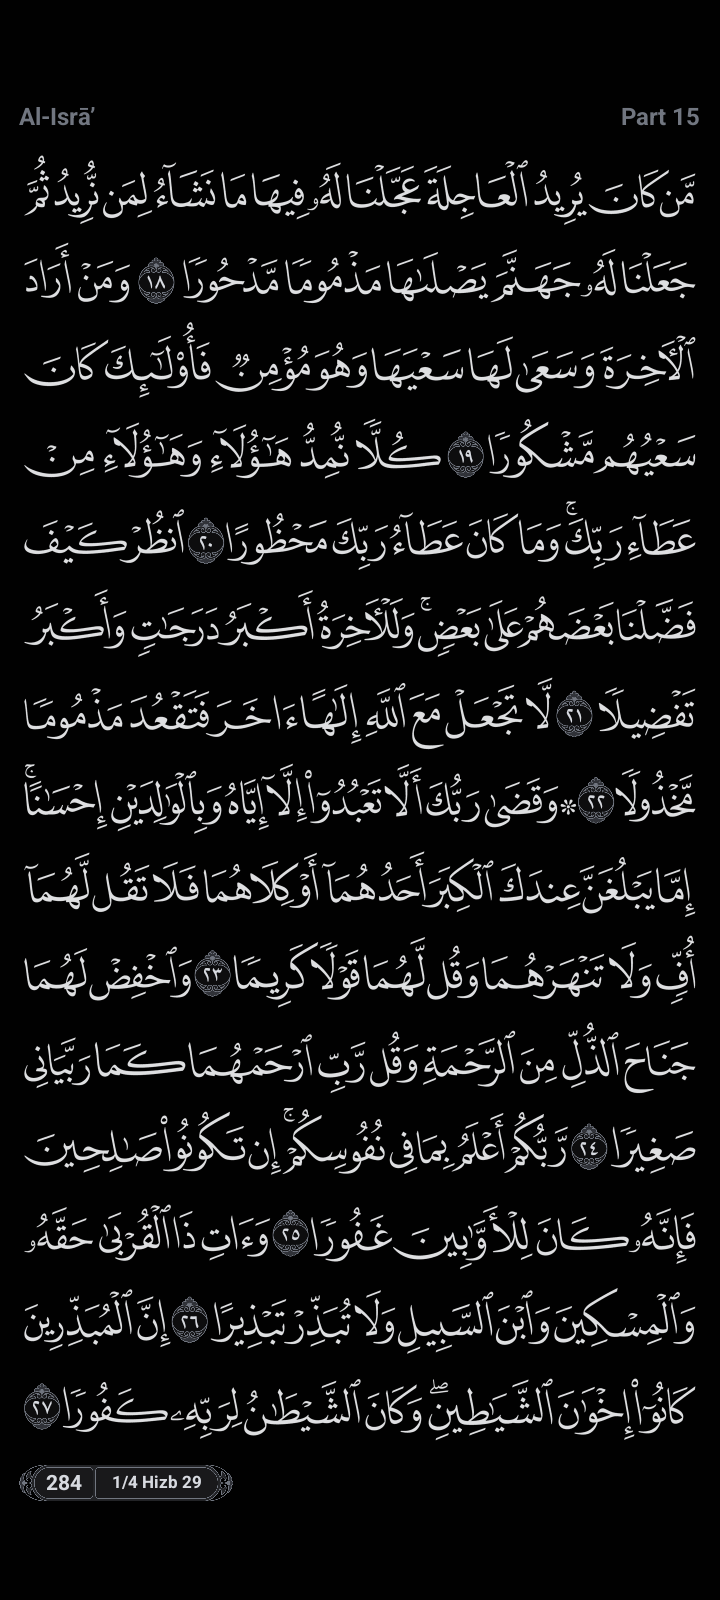 Al-Isrā’ Part 15
مَّن كَانَ يُرِيدُ ٱلْعَاجِلَةَ عَجَّلْنَا لَهُۥ فِيهَا مَا نَشَآءُ لِمَن نُّرِيدُ ثُمَّ
جَعَلْنَا لَهُۥ جَهَنَّمَ يَصْلَىٰهَا مَذْمُومًا مَّدْحُورًا ١٨ وَمَنْ أَرَادَ
ٱلْـَٔاخِرَةَ وَسَعَىٰ لَهَا سَعْيَهَا وَهُوَ مُؤْمِنٌ فَأُو۟لَـٰٓئِكَ كَانَ
سَعْيُهُم مَّشْكُورًا ١٩ كُلًّا نُّمِدُّ هَـٰٓؤُلَآءِ وَهَـٰٓؤُلَآءِ مِنْ
عَطَآءِ رَبِّكَ ۚ وَمَا كَانَ عَطَآءُ رَبِّكَ مَحْظُورًا ٢٠ ٱنظُرْ كَيْفَ
فَضَّلْنَا بَعْضَهُمْ عَلَىٰ بَعْضٍ ۚ وَلَلْـَٔاخِرَةُ أَكْبَرُ دَرَجَـٰتٍ وَأَكْبَرُ
تَفْضِيلًا ٢١ لَّا تَجْعَلْ مَعَ ٱللَّهِ إِلَـٰهًا ءَاخَرَ فَتَقْعُدَ مَذْمُومًا
مَّخْذُولًا ٢٢ ۞ وَقَضَىٰ رَبُّكَ أَلَّا تَعْبُدُوٓا۟ إِلَّآ إِيَّاهُ وَبِٱلْوَٰلِدَيْنِ إِحْسَـٰنًا ۚ
إِمَّا يَبْلُغَنَّ عِندَكَ ٱلْكِبَرَ أَحَدُهُمَآ أَوْ كِلَاهُمَا فَلَا تَقُل لَّهُمَآ
أُفٍّ وَلَا تَنْهَرْهُمَا وَقُل لَّهُمَا قَوْلًا كَرِيمًا ٢٣ وَٱخْفِضْ لَهُمَا
جَنَاحَ ٱلذُّلِّ مِنَ ٱلرَّحْمَةِ وَقُل رَّبِّ ٱرْحَمْهُمَا كَمَا رَبَّيَانِى
صَغِيرًا ٢٤ رَّبُّكُمْ أَعْلَمُ بِمَا فِى نُفُوسِكُمْ ۚ إِن تَكُونُوا۟ صَـٰلِحِينَ
فَإِنَّهُۥ كَانَ لِلْأَوَّٰبِينَ غَفُورًا ٢٥ وَءَاتِ ذَا ٱلْقُرْبَىٰ حَقَّهُۥ
وَٱلْمِسْكِينَ وَٱبْنَ ٱلسَّبِيلِ وَلَا تُبَذِّرْ تَبْذِيرًا ٢٦ إِنَّ ٱلْمُبَذِّرِينَ
كَانُوٓا۟ إِخْوَٰنَ ٱلشَّيَـٰطِينِ ۖ وَكَانَ ٱلشَّيْطَـٰنُ لِرَبِّهِۦ كَفُورًا ٢٧
284 1/4 Hizb 29